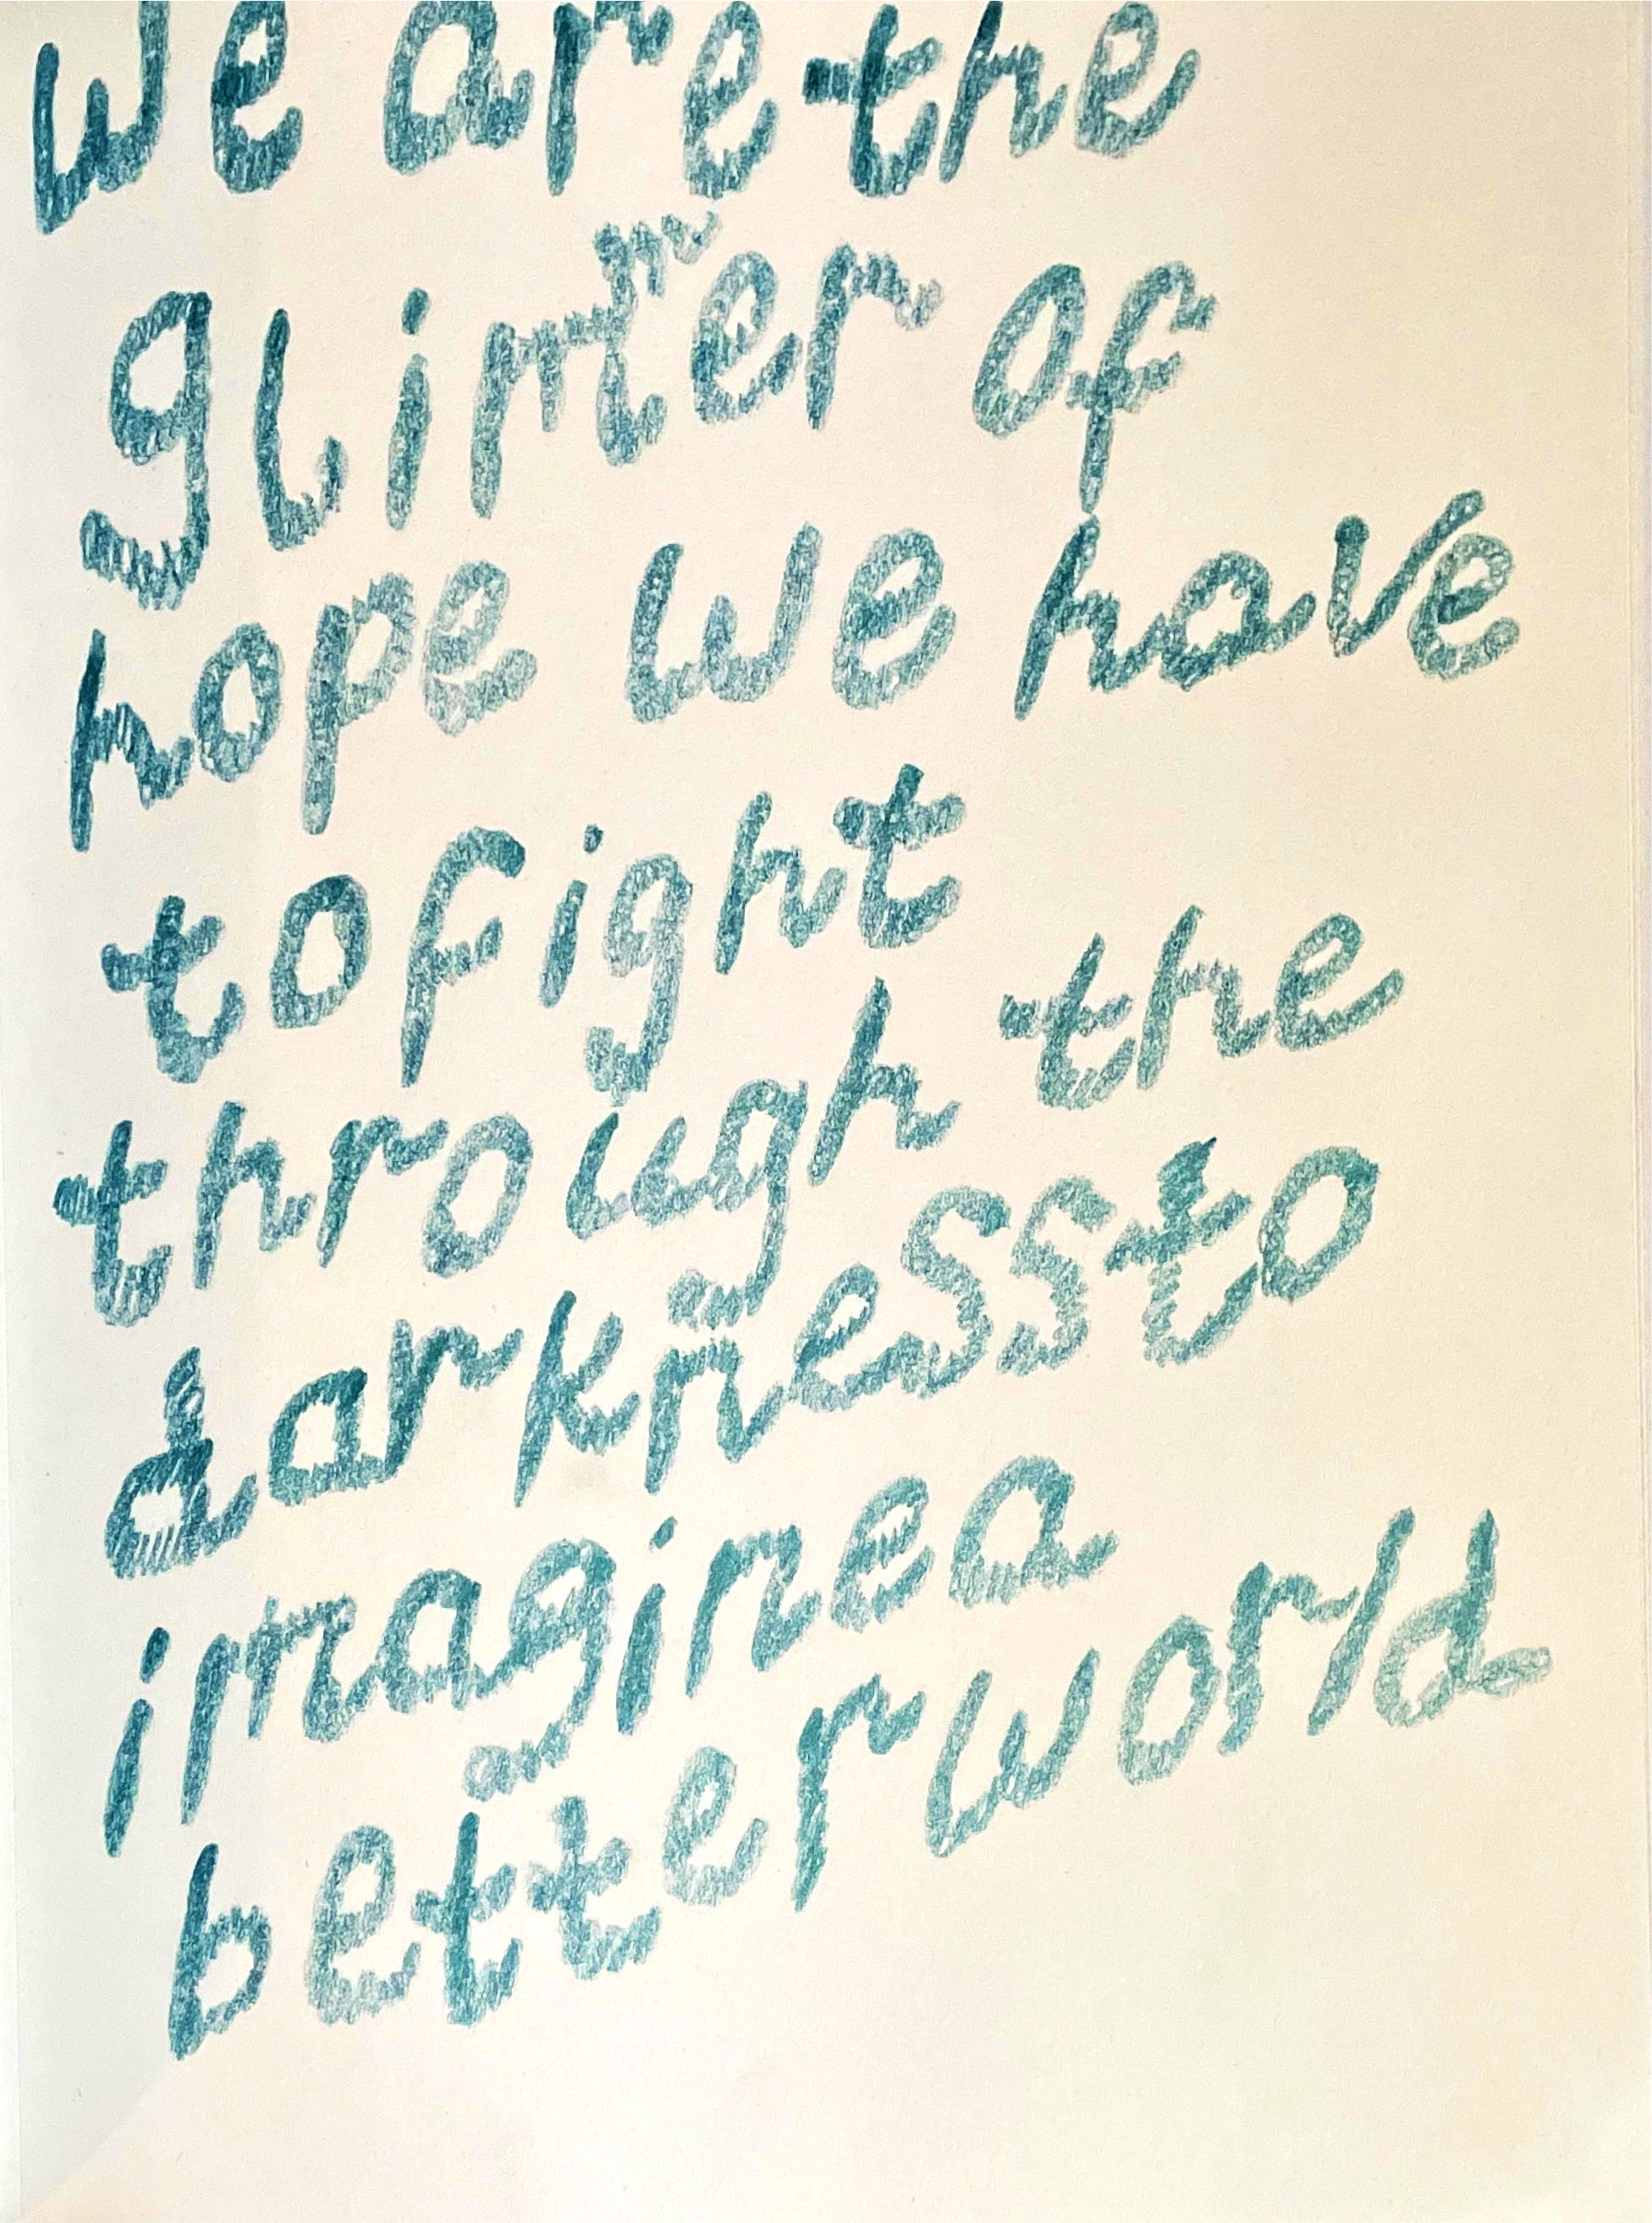 we are the
glimmer of
hope we have
to fight
through the
darkness to
imagine a
better world